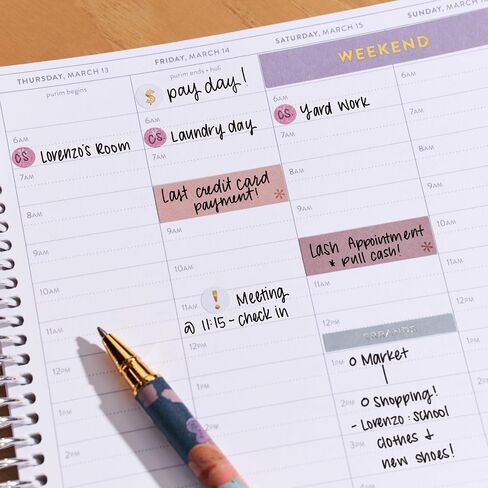 THURSDAY, MARCH 13
purim begins
6AM
CS
Lorenzo's Room
7AM
8AM
9AM
10AM
11AM
12PM
1PM
2PM
3PM
FRIDAY, MARCH 14
purim ends • holi
$ pay day!
6AM
CS
Laundry day
7AM
8AM
Last credit card
payment! *
9AM
10AM
11AM
! Meeting
@ 11:15 - check in
12PM
1PM
2PM
SATURDAY, MARCH 15
SUNDAY, MARCH
WEEKEND
6AM
CS
Yard Work
7AM
8AM
9AM
Lash Appointment
* pull cash! *
11AM
12PM
ERRANDS
O Market
1PM
2PM
O Shopping!
- Lorenzo: school
3PM
clothes +
new shoes!
4PM
6AM
7AM
8AM
9AM
10AM
11AM
12PM
1PM
2PM